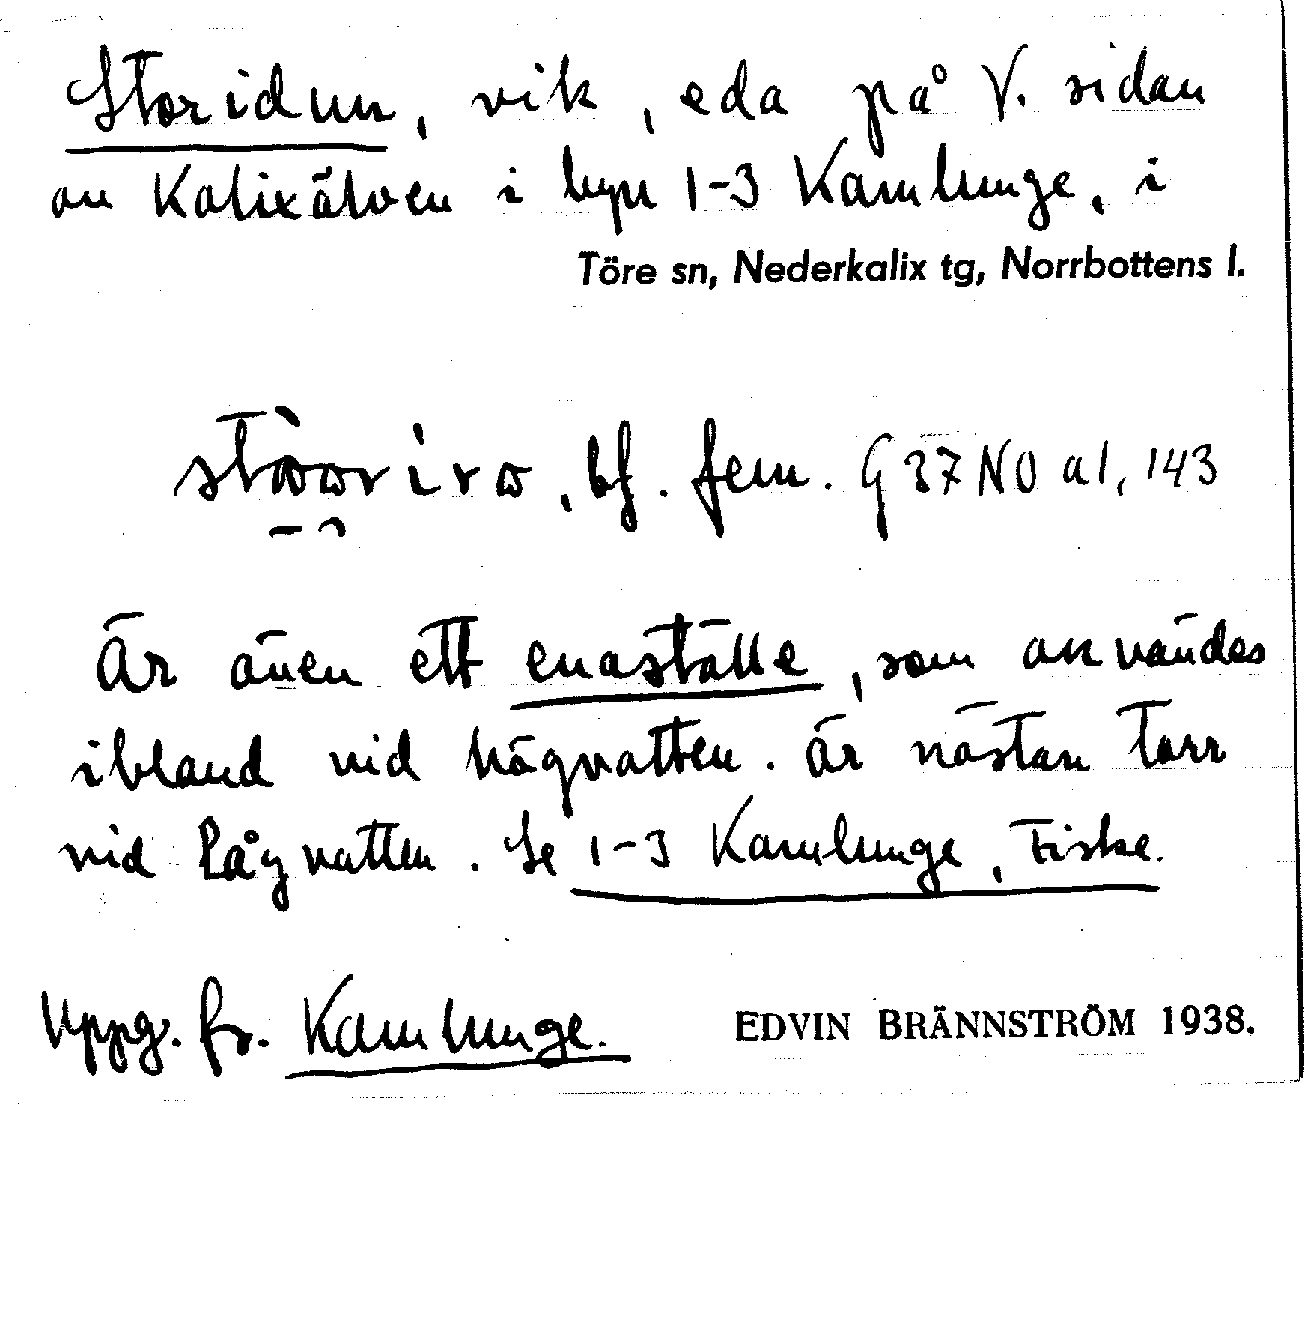 Storidun, vik, eda på V. sidan
av Kalixälven i byn 1-3 Kamlunge, i
Töre sn, Nederkalix tg, Norrbottens l.
bf. fem. G 37 NO a 1, 143
Är även ett enaställe, som användes
ibland vid högvatten. Är nästan torr
vid lågvatten. Se 1-3 Kamlunge, Fiske.
Uppg. fr. Kamlunge. EDVIN BRÄNNSTRÖM 1938.